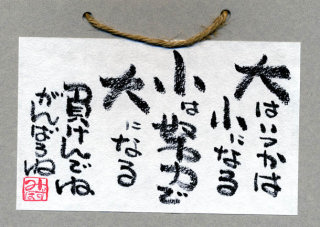 大はいつかは
小になる
小は努力で
大になる
負けんでね
がんばろね